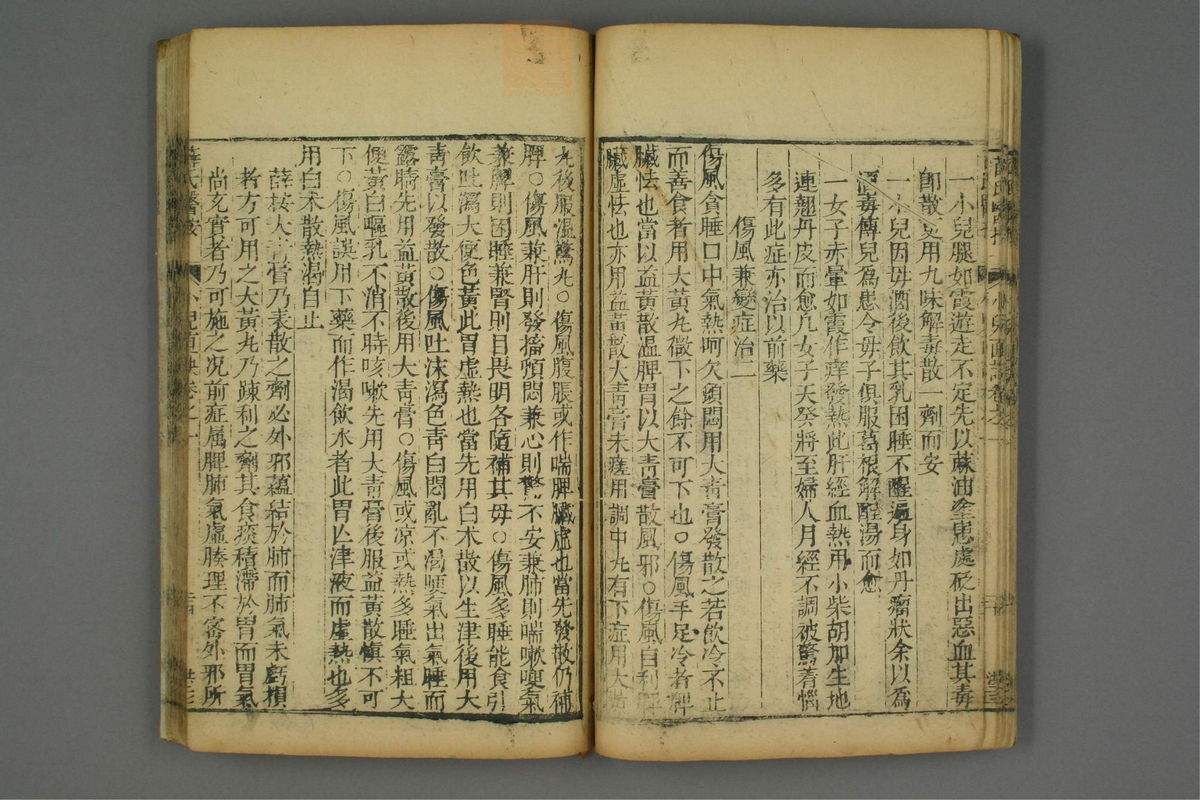 一小兒腿如霞遊走不定先以蔴油塗患處砭出惡血其毒
卽散更用九味解毒散一劑而安
一小兒因母酒後飲其乳困睡不醒遍身如丹瘤狀余以爲
酒毒傳兒爲患令母子俱服葛根解酲湯而愈
一女子赤暈如霞作痒發熱此肝經血熱用小柴胡加生地
連翹丹皮而愈凡女子天癸將至婦人月經不調被驚着惱
多有此症亦治以前藥
傷風兼變症治二
傷風貪睡口中氣熱呵欠頭悶用大青膏發散之若飲冷不止
而善食者用大黃丸微下之餘不可下也○傷風手足冷者脾
臟怯也當以益黃散溫脾胃以大青膏散風邪○傷風自利脾
臟虛怯也亦用益黃散大青膏未瘥用調中丸有下症用大黃
丸後服溫驚丸○傷風腹脹或作喘脾臟虛也當先發散仍補
脾○傷風兼肝則發搐頓悶兼心則驚不安兼肺則喘嗽哽氣
兼脾則困睡兼腎則目畏明各隨補其母○傷風多睡能食引
飲吐瀉大便色黃此胃虛熱也當先用白术散以生津後用大
青膏以發散○傷風吐沫瀉色靑白悶亂不渴哽氣出氣睡而
露睛先用益黃散後用大青膏○傷風或凉或熱多睡氣粗大
便黃白嘔乳不消不時咳嗽先用大青膏後服益黃散愼不可
下○傷風誤用下藥而作渴飲水者此胃亾津液而虛熱也多
用白术散熱渴自止
薛按大青膏乃表散之劑必外邪蘊結於肺而肺氣未虧損
者方可用之大黃丸乃踈利之劑其食痰積滯於胃而胃氣
尚充實者乃可施之况前症属脾肺氣虛腠理不密外邪所
薛氏醫按